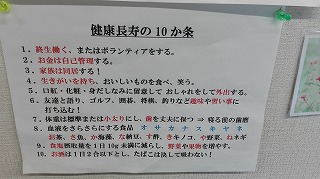 健康長寿の10か条
1、終生働く、またはボランティアをする。
2、お金は自己管理する。
3、家族は同居する!
4、生きがいを持ち、おいしいものを食べ、笑う。
5、口紅・化粧・身だしなみに留意して おしゃれをして外出する。
6、友達と語り、ゴルフ、囲碁、将棋、釣りなど趣味や習い事に
打ち込む!
7、体重は標準または小太りにし、歯を丈夫に保つ ⇒ 寝る前の歯磨
8、血液をさらさらにする食品 オサカナスキヤネ
お茶、さ魚、か海藻、な納豆、す酢、きキノコ、や野菜、ねネギ
9、食塩摂取量を1日10g未満に減らし、野菜や果物を増やす。
10、お酒は1日2合以下とし、たばこは決して吸わない!